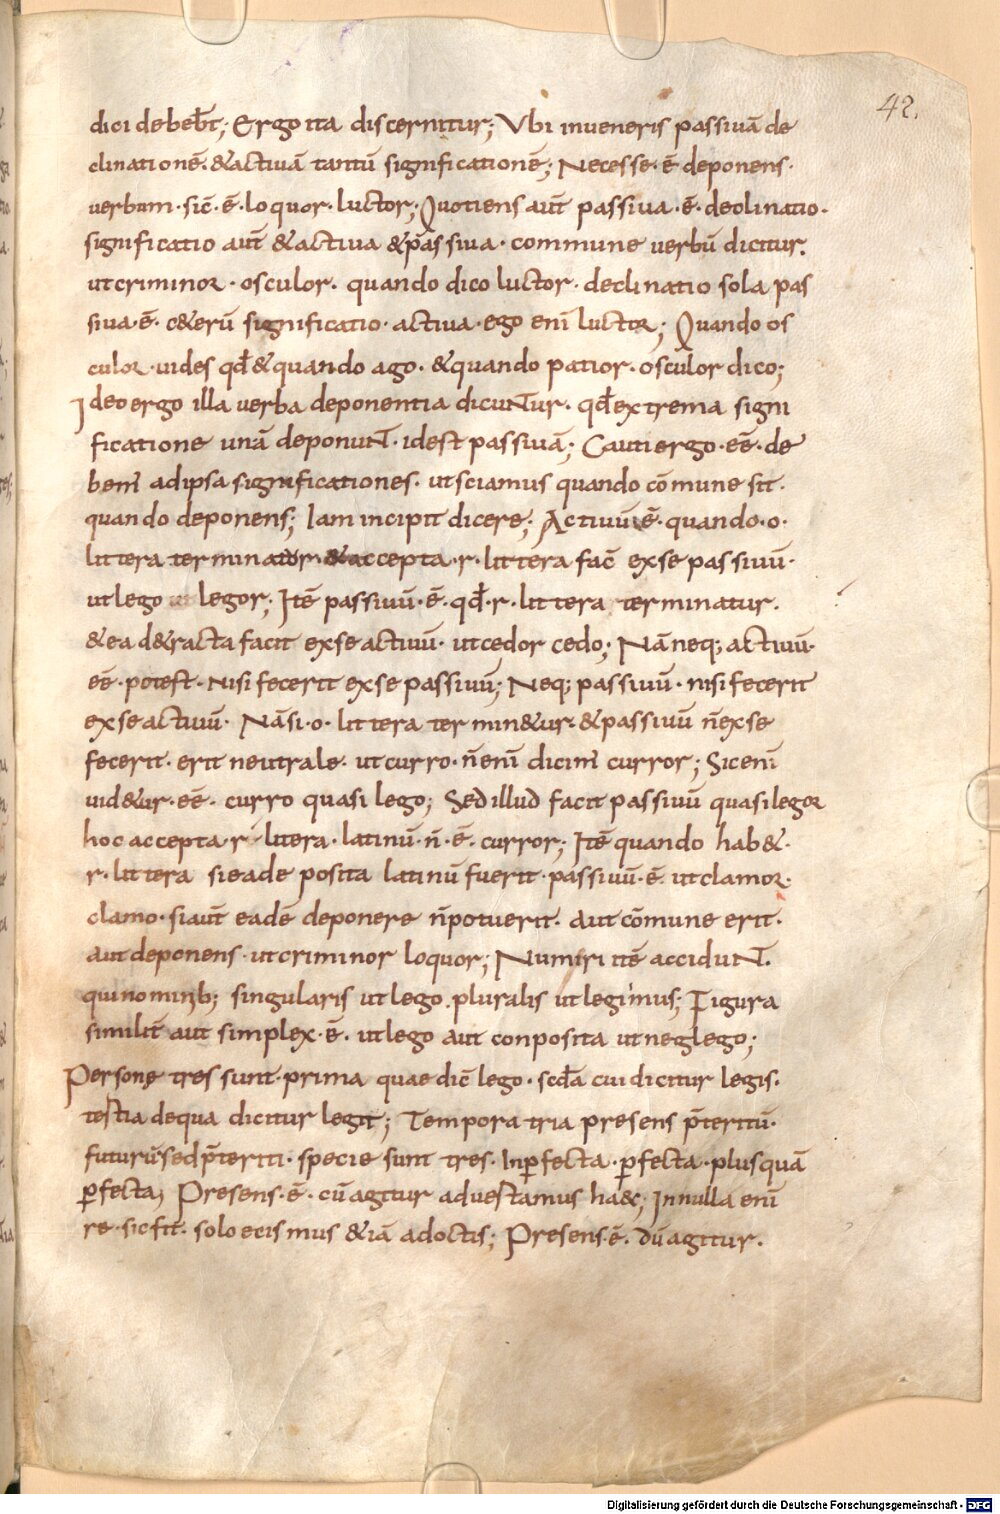 42.
dici debeb̄t; Ergo ita discernitur; Vbi inueneris passiuā de
clinationē. &actiuā tantū significationē; Necesse·ē deponens·
uerbum·sic̄·ē·loquor·luctor; Quotiens aut̄ passiua·ē·declinatio·
significatio aut̄ &actiua &passiua· commune uerbū dicitur.
utcriminor·osculor· quando dico luctor· declinatio sola pas
siua·ē· c&erū significatio· actiua·ego eni luctor; Quando os
culor·uides qđ &quando ago· &quando patior·osculor dico;
Ideoergo illa uerba deponentia dicuntur· qđ extrema signi
ficatione unā deponunt·idest passiuā; Cauti ergo·eē·de
bem̄ adipsa significationes· utsciamus quando cōmune sit·
quando deponens; Iam incipit dicere; Actiuū ē·quando·o·
littera terminatur &accepta·r·littera fac̄ exse passiuū·
utlego legor; Itē passiuū·ē·qđ·r·littera terminatur.
&ea d&racta facit exse actiuū· utcedor cedo; Nā neq; actiuū·
eē·potest·nisi fecerit exse passiuū; Neq; passiuū·nisi fecerit
exse actiuū· Nā si·o·littera termin&ur·&passiuū n̄ exse
fecerit·erit neutrale·ut curro·n̄ eni dicim̄ curror; Sic enī
uid&ur·eē· curro quasi lego; Sed illud facit passiuū quasi legor
hoc accepta·r·littera·latinū·n̄·ē·curror; Itē quando hab&·
r·littera sieade posita latinū fuerit·passiuū·ē·utclamor·
clamo·siaut̄ eadē deponere n̄ potuerit· aut cōmune erit·
aut deponens·utcriminor loquor; Numiri itē accidunt.
quinominib; singularis utlego·pluralis utlegimus; Figura
similit̄ aut simplex·ē· utlego aut conposita utneglego;
Personę tres sunt·prima quae dic̄ lego·scđa cui dicitur legis·
testia dequa dicitur legit; Tempora tria presens p̄teritū·
futurū sed p̄teriti·specie sunt tres· Inꝑfecta·ꝑfecta·plusquā
ꝑfecta; Presens·ē· cū agitur aduestamus haec; In nulla enī
re·sicfit·soloecismus &iā adoctis; Presens·ē· dū agitur.
Digitalisierung gefördert durch die Deutsche Forschungsgemeinschaft - DFG